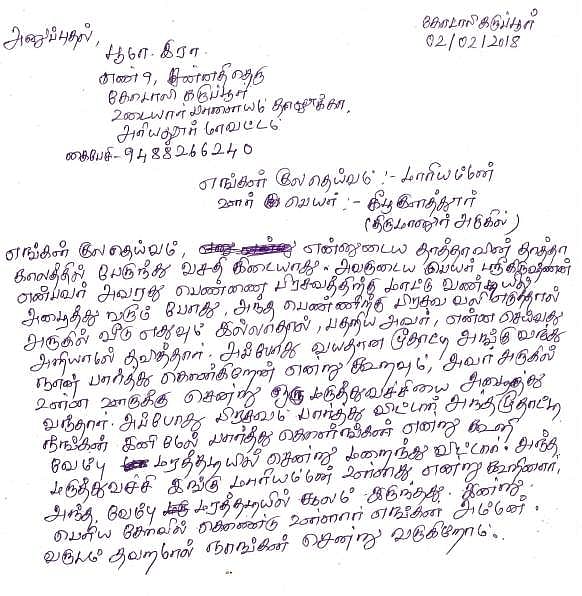 கோடாலிகருப்பூர்
02/02/2018
அனுப்புதல்,
பூமா. இரா.
எண் 9, சன்னதி தெரு
கோடாலி கருப்பூர்
உடையார் பாளையம் தாலுக்கா,
அரியலூர் மாவட்டம்
கைபேசி - 9488266240
எங்கள் குலதெய்வம் :- மாரியம்மன்
ஊர் பெயர் :- கீழகுளத்தூர்
(திருமானூர் அருகில்)
எங்கள் குலதெய்வம், என்னுடைய தாத்தாவின் தாத்தா
காலத்தில் பேருந்து வசதி கிடையாது. அவருடைய பெயர்
என்பவர் அவரது பெண்ணை பிரசவத்திற்கு மாட்டு வண்டியில்
அழைத்து வரும் போது, அந்த பெண்ணிற்கு பிரசவ வலி எடுத்தால்
அருகில் வீடு எதுவும் இல்லாததால், பதறிய அவர், என்ன செய்வது
அறியாமல் தவித்தார். அப்போது வயதான மூதாட்டி அங்கு வந்து
நான் பார்த்து கொள்கிறேன் என்று கூறவும், அவர் அருகில்
உள்ள ஊருக்கு சென்று ஒரு மருத்துவச்சியை அழைத்து
வந்தார். அப்போது பிரசவம் பார்த்து விட்டார். அந்த மூதாட்டி
நீங்கள் இனிமேல் பார்த்து கொள்ளுங்கள் என்று கூறி
வேம்பு மரத்தடியில் சென்று மறைந்து விட்டார். அந்த
மருத்துவச்சி இங்கு மாரியம்மன் உள்ளது என்று கூறினார்.
அந்த வேம்பு மரத்தடியில் சூலம் இருந்தது. இன்று
பெரிய கோவில் கொண்டு உள்ளார் எங்கள் அம்மன்.
வருடம் தவறாமல் நாங்கள் சென்று வருகிறோம்.